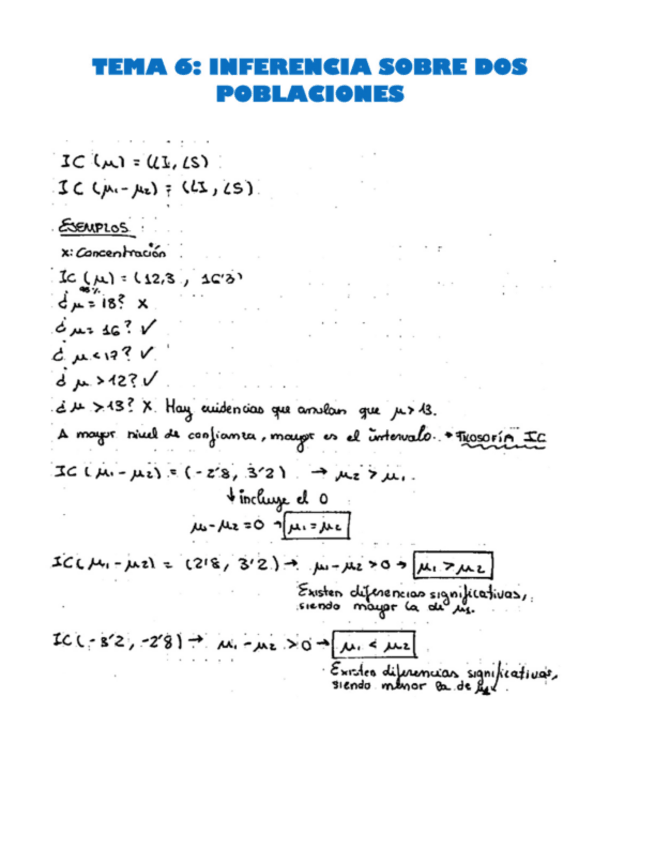 TEMA 6: INFERENCIA SOBRE DOS
POBLACIONES
IC (μ) = (LI, LS)
IC (μ₁-μ₂) = (LI, LS)
EJEMPLOS
X: Concentración
IC (μ) = (12,3 , 16'3)
95%
¿μ = 18? X
¿μ = 16? ✓
¿μ < 17? ✓
¿μ > 12? ✓
¿μ > 13? X. Hay evidencias que anulan que μ > 13.
A mayor nivel de confianza, mayor es el intervalo. → FILOSOFÍA IC
IC (μ₁ - μ₂) = (-2'8, 3'2) → μ₂ > μ₁.
↓ incluye el 0
μ₁-μ₂ = 0 → μ₁ = μ₂
IC (μ₁ - μ₂) = (2'8, 3'2) → μ₁-μ₂ > 0 → μ₁ > μ₂
Existen diferencias significativas,
siendo mayor la de μ₁.
IC (-3'2, -2'8) → μ₁ - μ₂ > 0 → μ₁ < μ₂
Existen diferencias significativas,
siendo menor la de μ₁.